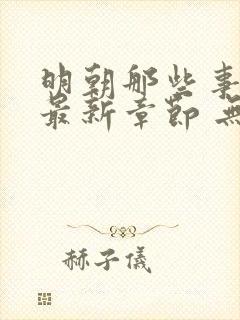 明朝那些事
最新章節 無
赫子儀